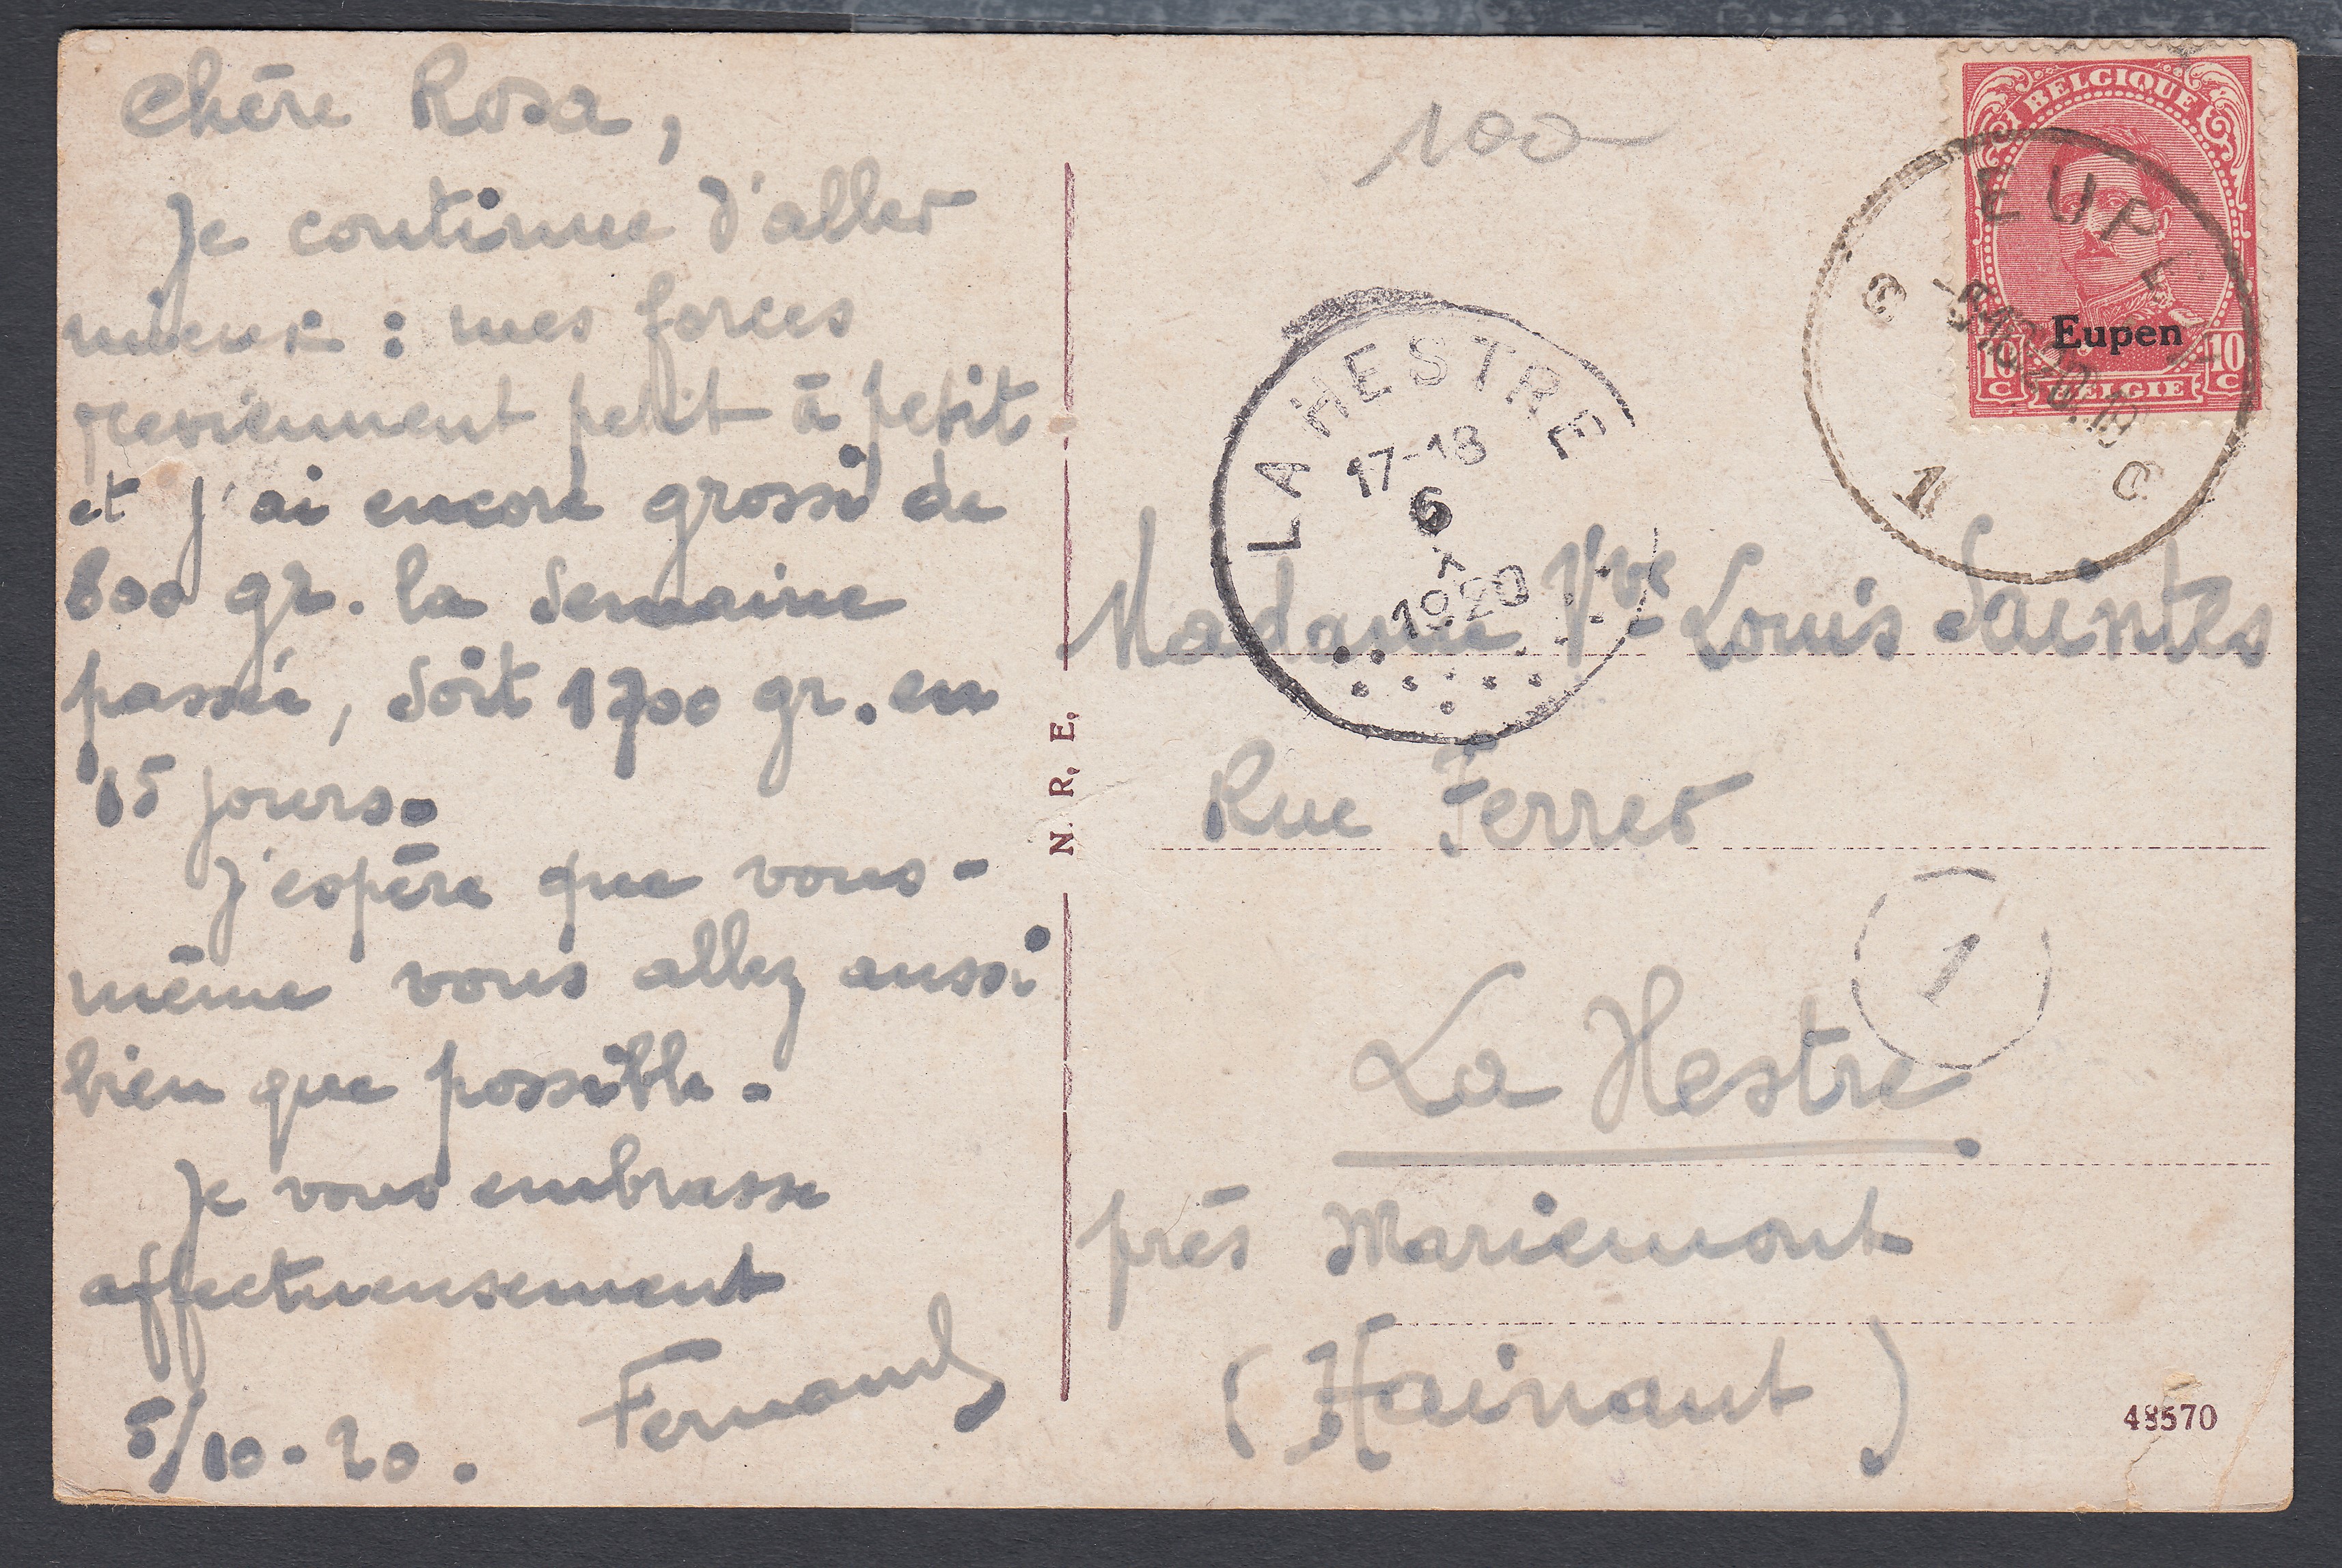 Chère Rosa,
Je continue d'aller
mieux : mes forces
reviennent petit à petit
et j'ai encore grossi de
800 gr. la semaine
passée, soit 1700 gr. en
15 jours.
J'espère que vous-
même vous allez aussi
bien que possible.
Je vous embrasse
affectueusement
Fernand
5/10-20.
N. R. E.
100
BELGIQUE
Eupen
10 C BELGIE 10 C
EUPEN
1
LA HESTRE
17-18
6
1920
Madame Vve Louis Saintes
Rue Ferrer
1
La Hestre
près Mariemont
(Hainaut)
48570